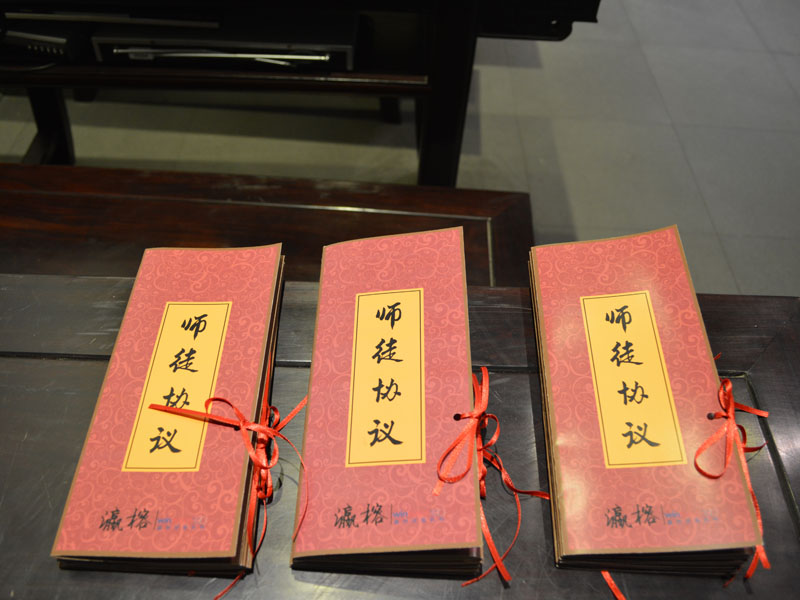 师徒协议
瀛榕
师徒协议
瀛榕
师徒协议
瀛榕